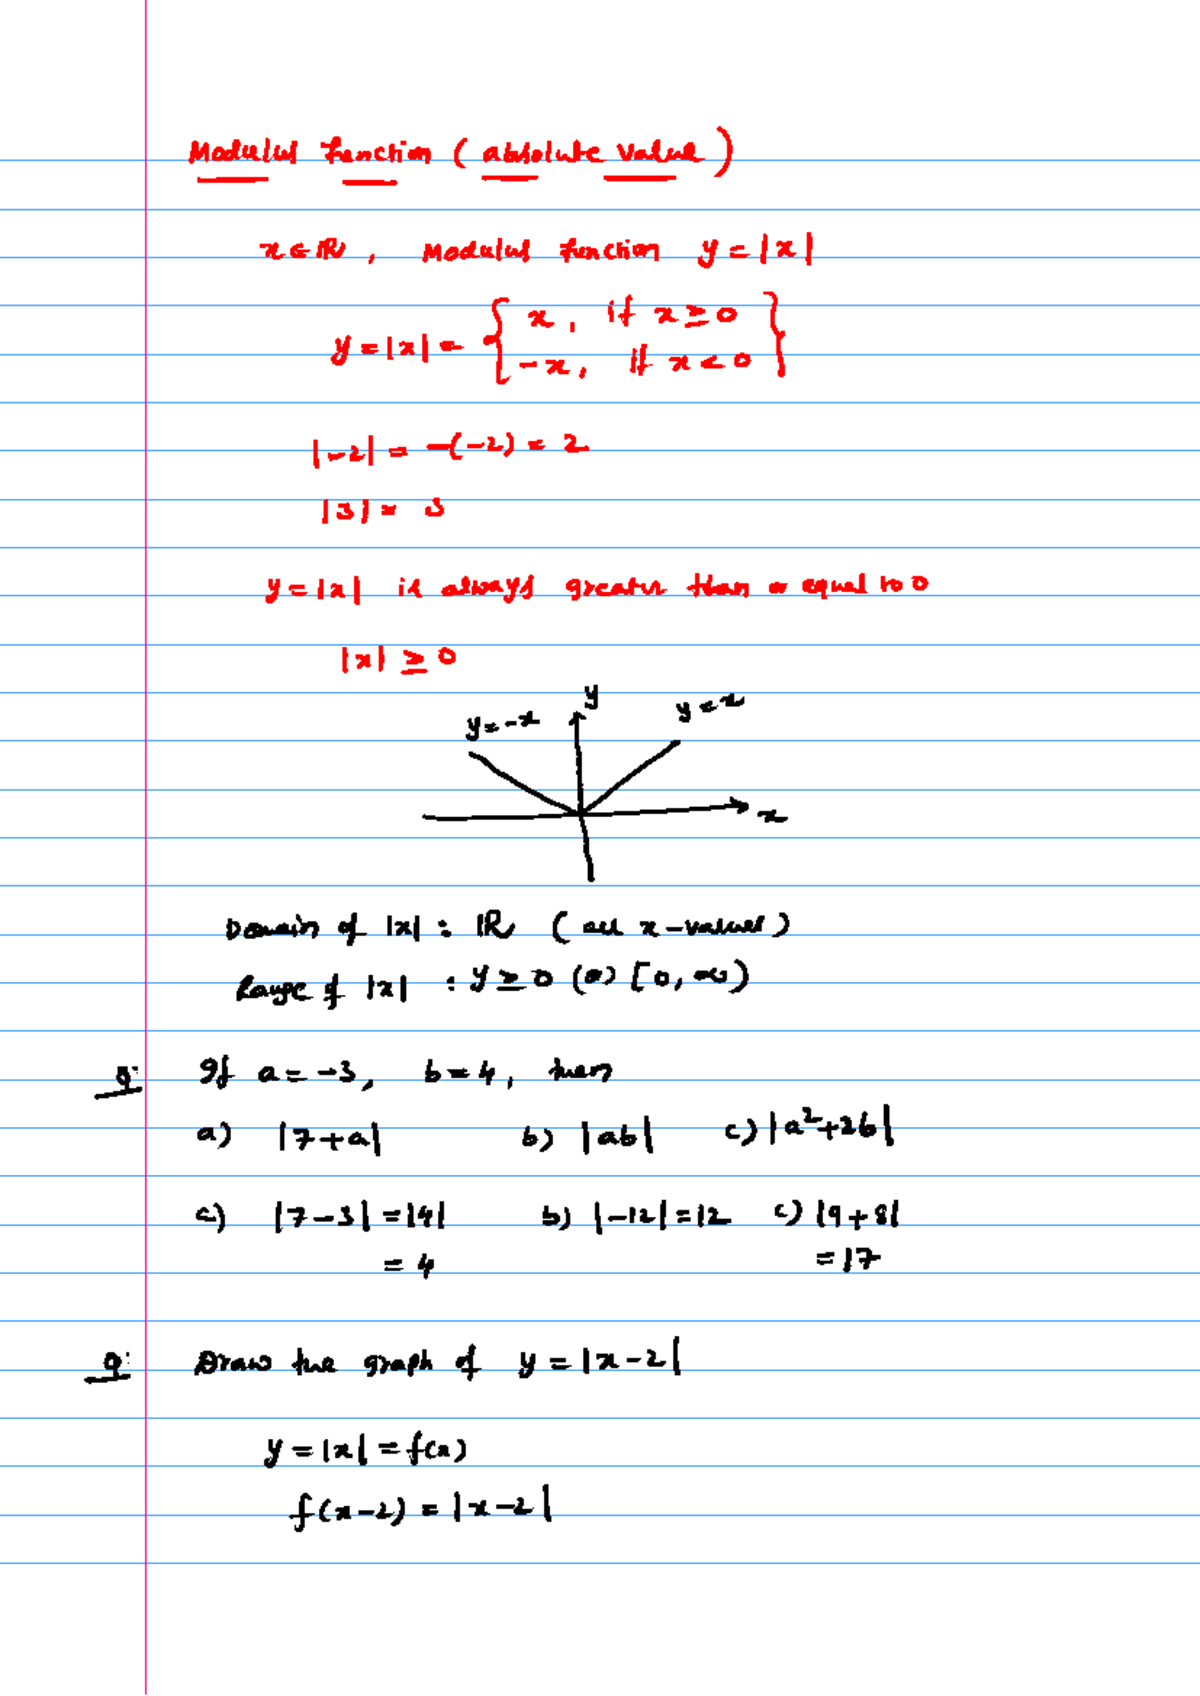 Modulus function ( absolute value )
x ∈ ℝ , Modulus function y = |x|
y = |x| = { x , if x ≥ 0
-x , if x < 0 }
|-2| = -(-2) = 2
|3| = 3
y = |x| is always greater than or equal to 0
|x| ≥ 0
y
y = -x
y = x
x
Domain of |x| : ℝ ( all x-values )
Range of |x| : y ≥ 0 (or) [0, ∞)
Q: If a = -3, b = 4, then
a) |7+a| b) |ab| c) |a²+2b|
a) |7-3| = |4| b) |-12| = 12 c) |9+8|
= 4 = 17
Q: Draw the graph of y = |x-2|
y = |x| = f(x)
f(x-2) = |x-2|